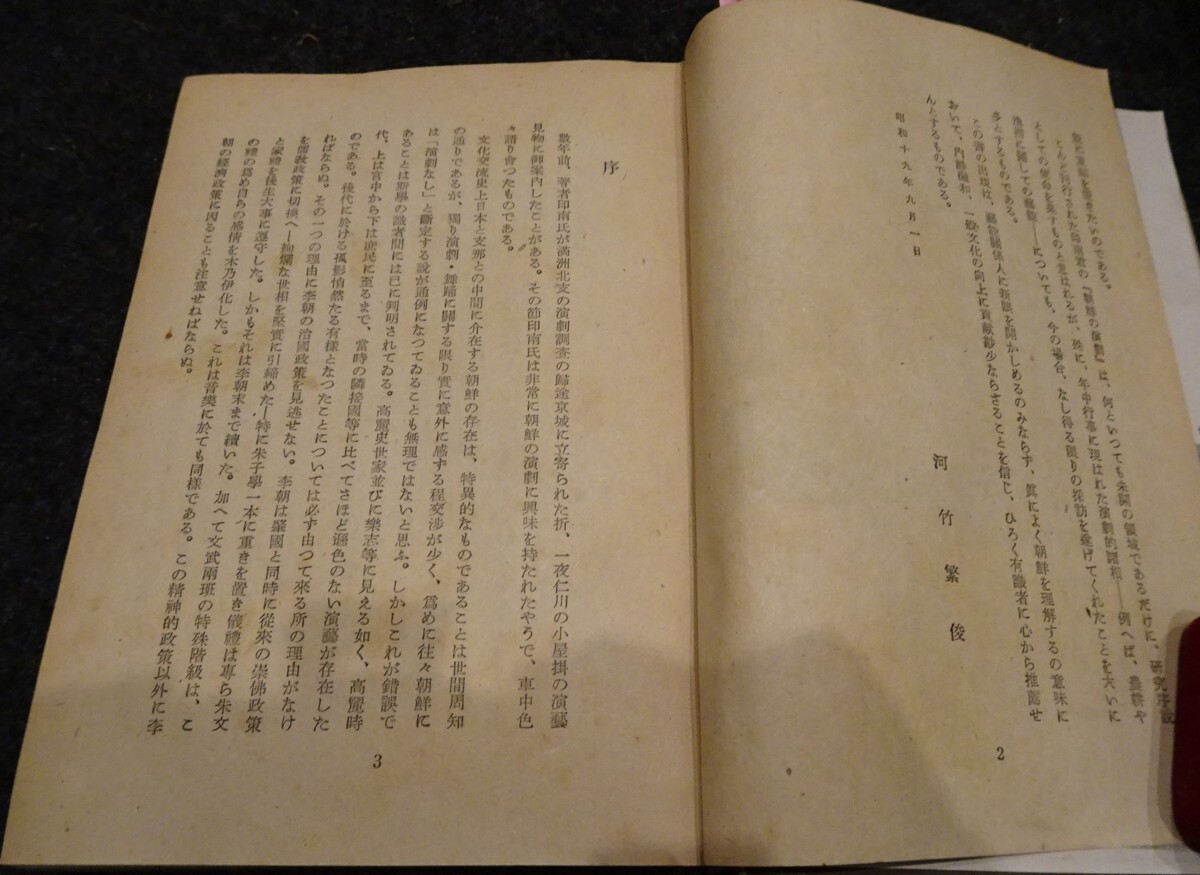 に演劇を書きたいのである。
とんど刊行された印南君の『朝鮮の演劇』は、何といつても未開の領域であるだけに、研究序説
としての使命を果すものと思はれるが、殊に、年中行事に現はれた演劇的諸相――例へば、農耕や
漁撈に關しての ――についても、今の場合、なし得る限りの採訪を遂げてくれたことを大いに
多とするものである。
この書の出現は、 關係人に 眼を開かしめるのみならず、眞によく朝鮮を理解するの意味に
おいて、内鮮融和、一般文化の向上に貢献尠少ならざることを信じ、ひろく有識者に心から推薦せ
んとするものである。
昭和十九年九月一日
河竹繁俊
2
序
數年前、著者印南氏が滿洲北支の演劇調査の歸途京城に立寄られた折、一夜仁川の小屋掛の演藝
見物に御案内したことがある。その節印南氏は非常に朝鮮の演劇に興味を持たれたやうで、車中色
々語り會つたものである。
文化交流史上日本と支那との中間に介在する朝鮮の存在は、特異的なものであることは世間周知
の通りであるが、獨り演劇・舞踊に關する限り實に意外に感ずる程交渉が少く、爲めに往々朝鮮に
は「演劇なし」と斷定する説が通例になつてゐることも無理ではないと思ふ。しかしこれが錯誤で
あることは斯學の識者間には已に判明されてゐる。高麗史世家並びに樂志等に見える如く、高麗時
代、上は宮中から下は庶民に至るまで、當時の隣接國等に比べてさほど遜色のない演藝が存在した
のである。後代に於ける孤影悄然たる有様となつたことについては必ず由つて來る所の理由がなけ
ればならぬ。その一つの理由に李朝の治國政策を見逃せない。李朝は肇國と同時に從來の崇佛政策
を儒教政策に切換へ―絢爛な世相を堅實に引締めた―特に朱子學一本に重きを置き儀禮は專ら朱文
と家禮を後生大事に遵守した。しかもそれは李朝末まで續いた。加へて文武兩班の特殊階級は、こ
の禮の爲め自らの感情を木乃伊化した。これは音樂に於ても同樣である。この精神的政策以外に李
朝の經濟政策に因ることも注意せねばならぬ。
3